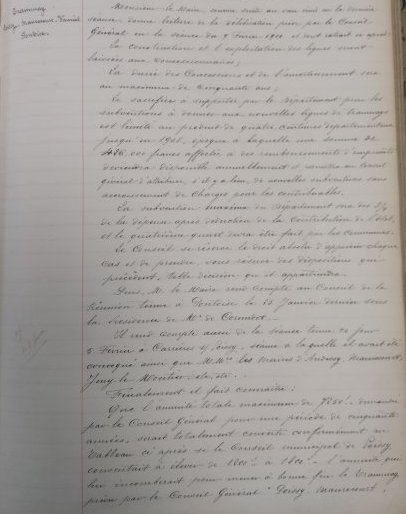 Tramway
Poissy - Maurecourt - Neuville
Pontoise.
Monsieur le Maire comme suite au vœu émis en la dernière
séance, donne lecture de la délibération prise par le Conseil
Général en la séance du 9 Février 1900 et dont extrait ci après:
La construction et l'exploitation des lignes seront
laissées aux Concessionnaires;
La durée des Concessions et de l'amortissement sera
au maximum de Cinquante ans;
Le sacrifice à supporter par le département pour les
subventions à donner aux nouvelles lignes de tramways
est limité au produit de quatre centimes départementaux
jusqu'en époque à laquelle une somme de
francs affectée à des remboursements d'emprunts
deviendra disponible annuellement et permettra au Conseil
général d'attribuer, s'il y a lieu, de nouvelles subventions sans
accroissement de Charges pour les contribuables.
La subvention maxima du département sera des 3/4
de la dépense après déduction de la Contribution de l'État,
et le quatrième quart devra être fait par les Communes.
Le Conseil se réserve le droit absolu d'apprécier chaque
cas et de prendre, sous réserve des dispositions qui
précèdent, telle décision qu'il appartiendra.
Puis, M. le Maire rend compte au Conseil de la
Réunion tenue à Pontoise le 25 Janvier dernier sous
la Présidence de Mr de
Il rend compte aussi de la séance tenue ce jour
5 Février à Carrières s/ Poissy, séance à laquelle il avait été
convoqué ainsi que M. Mrs les Maires d'Andrésy, Maurecourt,
Jouy le Moutier, etc, etc.
Finalement il fait connaître:
Que l'annuité totale maximum de demandée
par le Conseil Général pour une période de cinquante
années, serait totalement couverte conformément au
tableau ci après si le Conseil municipal de Poissy
consentait à élever de à l'annuité qui
lui incomberait pour mener à bonne fin le Tramway
prévu par le Conseil Général "Poissy, Maurecourt,